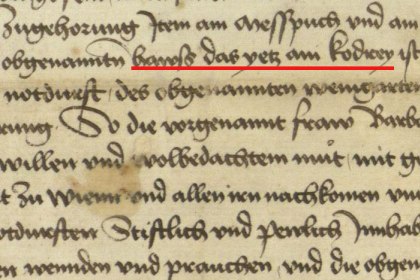 Zugehorung Item am Messpuch und am
obgenannten hawss das yetz am kodrey ist
notdurft des obgenannten weingarten
rung So die vorgenant fraw Barb
willen und wolbedachtem mut mit g
t zu Wienn und allen irn nachkomen vn
otdurften Stifftlich und pewlich Innhab
en wennden und prauchen und die obge